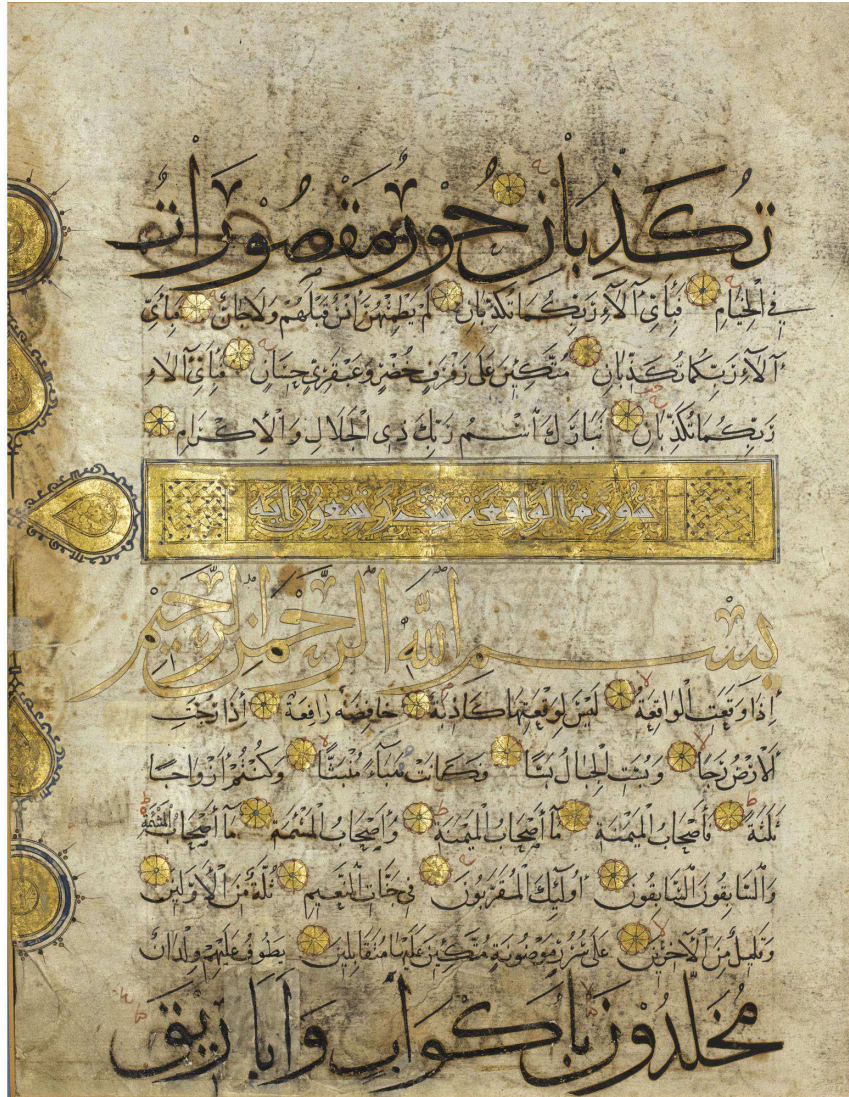 تُكَذِّبَانِ حُورٌ مَقْصُورَاتٌ
فِي الْخِيَامِ فَبِأَيِّ آلَاءِ رَبِّكُمَا تُكَذِّبَانِ لَمْ يَطْمِثْهُنَّ إِنْسٌ قَبْلَهُمْ وَلَا جَانٌّ فَبِأَيِّ
آلَاءِ رَبِّكُمَا تُكَذِّبَانِ مُتَّكِئِينَ عَلَى رَفْرَفٍ خُضْرٍ وَعَبْقَرِيٍّ حِسَانٍ فَبِأَيِّ آلَاءِ
رَبِّكُمَا تُكَذِّبَانِ تَبَارَكَ اسْمُ رَبِّكَ ذِي الْجَلَالِ وَالْإِكْرَامِ
سورة الواقعة ست وتسعون اية
بسم الله الرحمن الرحيم
إِذَا وَقَعَتِ الْوَاقِعَةُ لَيْسَ لِوَقْعَتِهَا كَاذِبَةٌ خَافِضَةٌ رَافِعَةٌ إِذَا رُجَّتِ
الْأَرْضُ رَجًّا وَبُسَّتِ الْجِبَالُ بَسًّا فَكَانَتْ هَبَاءً مُنْبَثًّا وَكُنْتُمْ أَزْوَاجًا
ثَلَثَةً فَأَصْحَابُ الْمَيْمَنَةِ مَا أَصْحَابُ الْمَيْمَنَةِ وَأَصْحَابُ الْمَشْئَمَةِ مَا أَصْحَابُ الْمَشْئَمَةِ
وَالسَّابِقُونَ السَّابِقُونَ أُولَئِكَ الْمُقَرَّبُونَ فِي جَنَّاتِ النَّعِيمِ ثُلَّةٌ مِنَ الْأَوَّلِينَ
وَقَلِيلٌ مِنَ الْآخِرِينَ عَلَى سُرُرٍ مَوْضُونَةٍ مُتَّكِئِينَ عَلَيْهَا مُتَقَابِلِينَ يَطُوفُ عَلَيْهِمْ وِلْدَانٌ
مُخَلَّدُونَ بِأَكْوَابٍ وَأَبَارِيقَ